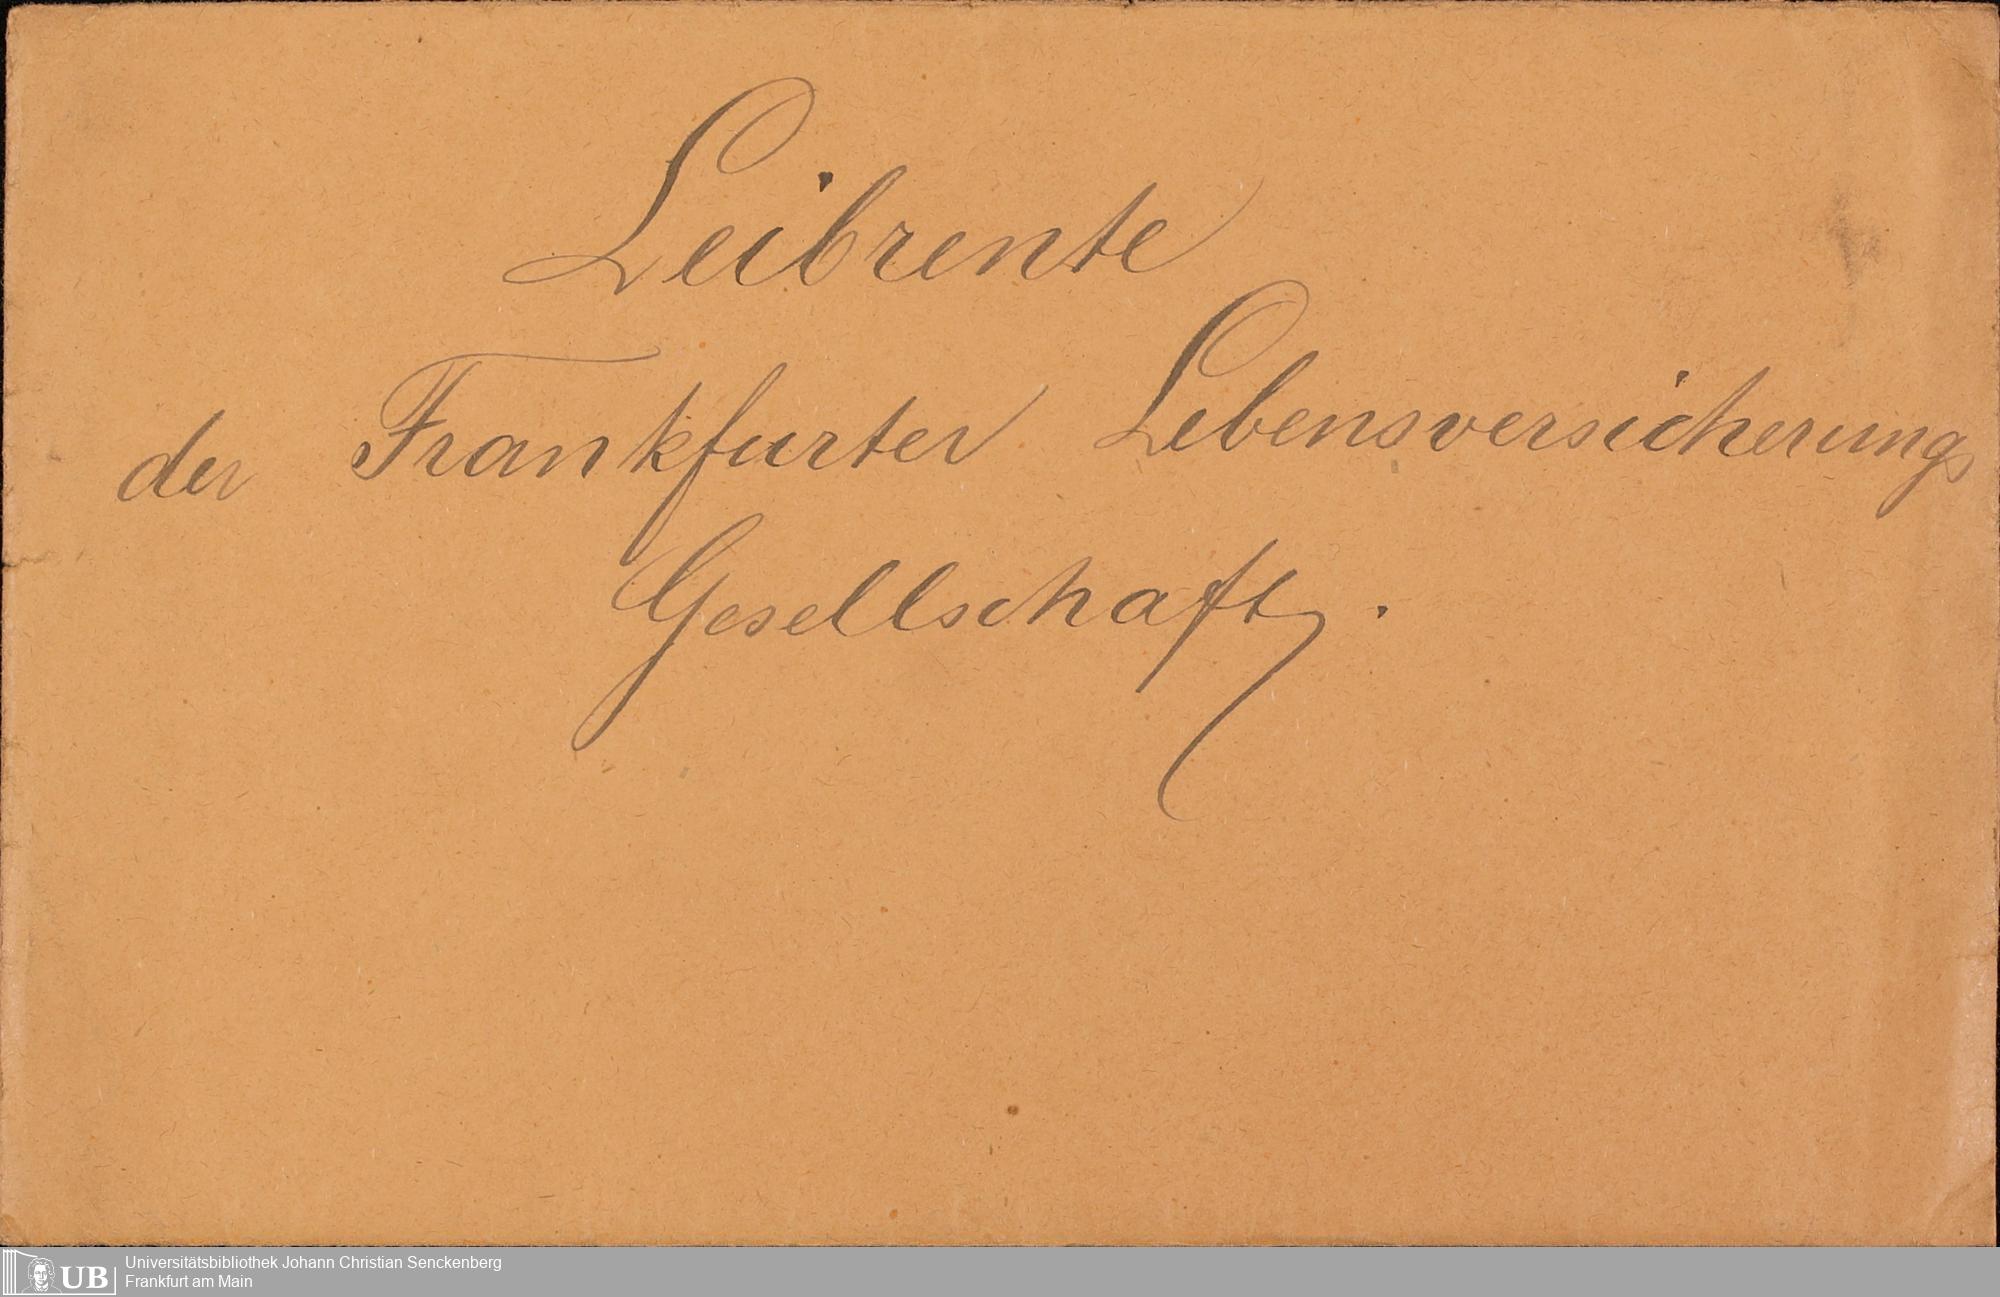 Leibrente
der Frankfurter Lebensversicherungs
Gesellschaft.
UB
Universitätsbibliothek Johann Christian Senckenberg
Frankfurt am Main